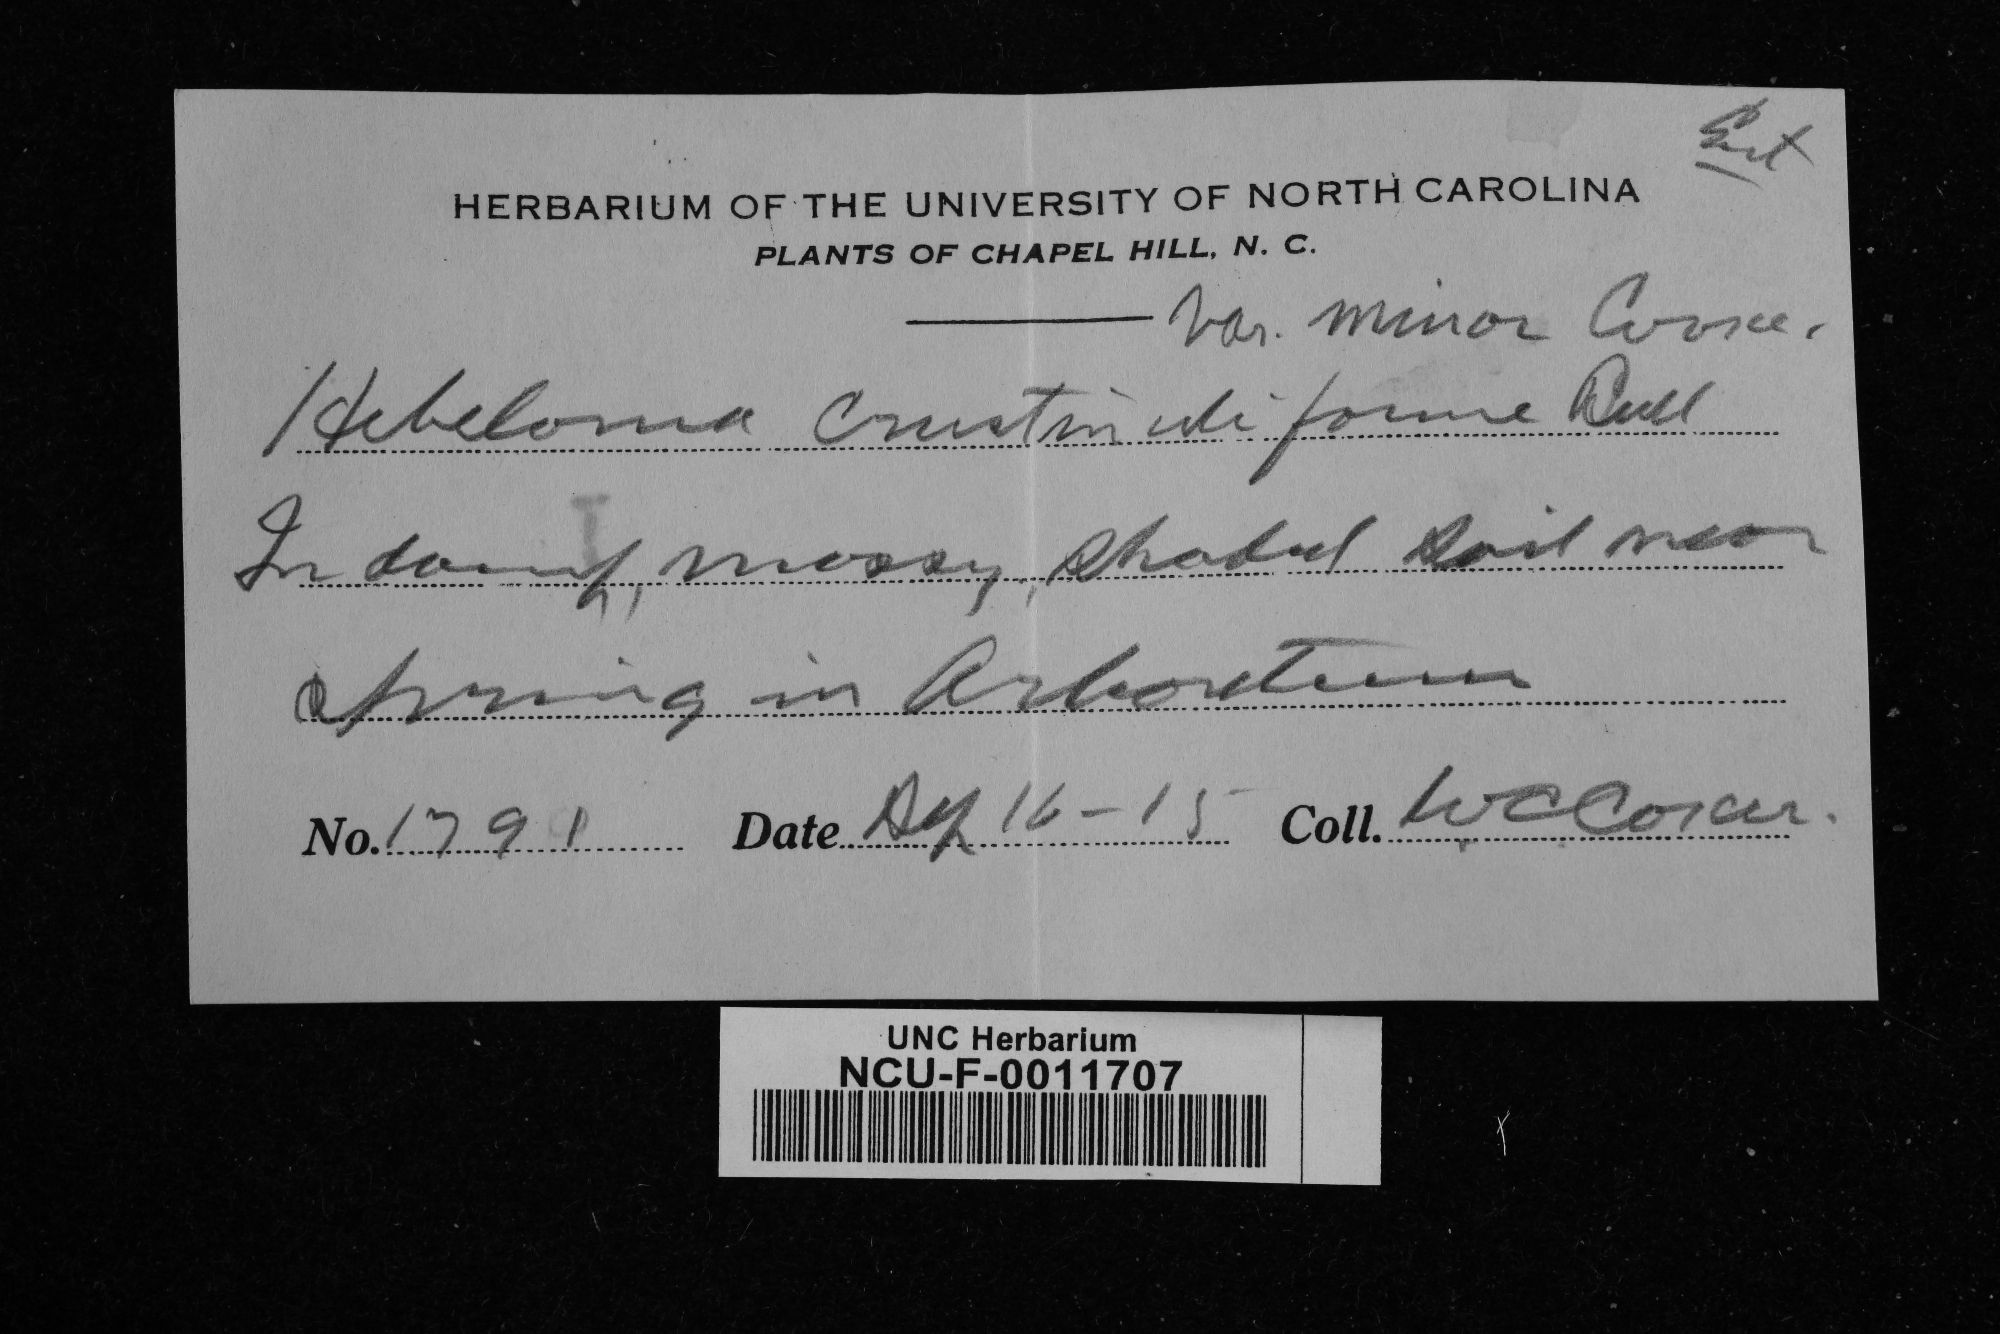 Ent
HERBARIUM OF THE UNIVERSITY OF NORTH CAROLINA
PLANTS OF CHAPEL HILL, N. C.
var. minor Cooke.
Hebeloma crustiniliforme Bull
In damp, mossy, shaded soil near
spring in Arboretum
No. 1791 Date Sep 16-15 Coll. W C Coker.
UNC Herbarium
NCU-F-0011707